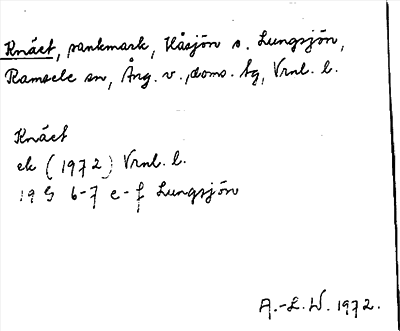 Knäet, sankmark, Håsjön o. Lungsjön,
Ramsele sn, Ång. v. doms. tg, Vrnl. l.
Knäet
ek (1972) Vrnl. l.
19 G 6-7 e-f Lungsjön
A.-L. W. 1972.